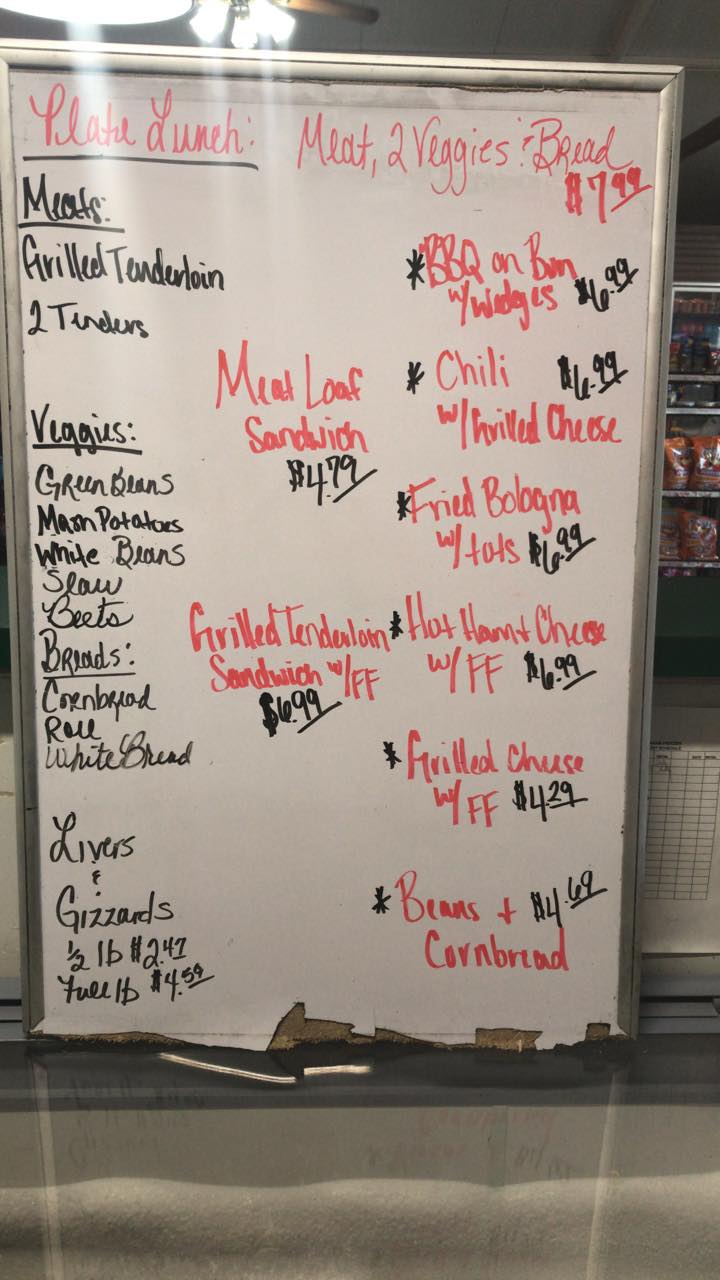 Plate Lunch: Meat, 2 Veggies & Bread
$7.99
Meats:
Grilled Tenderloin
2 Tenders
Veggies:
Green Beans
Mash Potatoes
White Beans
Slaw
Beets
Breads:
Cornbread
Roll
White Bread
Livers
&
Gizzards
1/2 lb $2.47
Full lb $4.59
Meat Loaf
Sandwich
$4.79
Grilled Tenderloin
Sandwich w/FF
$6.99
*BBQ on Bun
w/Wedges $6.99
* Chili $6.99
w/Grilled Cheese
*Fried Bologna
w/tots $6.99
*Hot Ham + Cheese
w/FF $6.99
* Grilled Cheese
w/FF $4.29
* Beans + $4.69
Cornbread